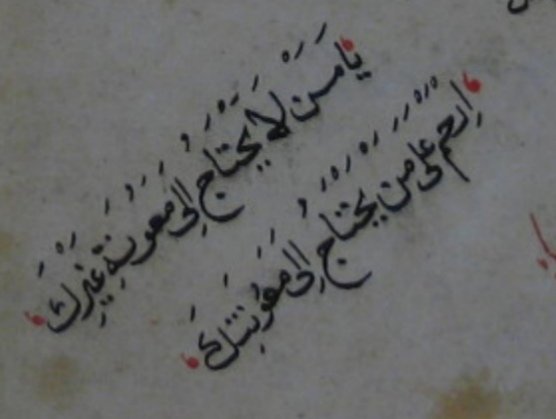 يَا مَنْ لَا يَحْتَاجُ اِلَى مَعُونَةِ غَيْرِكَ
اِرْحَمْ عَلَى مَنْ يَحْتَاجُ اِلَى مَعُونَتِكَ